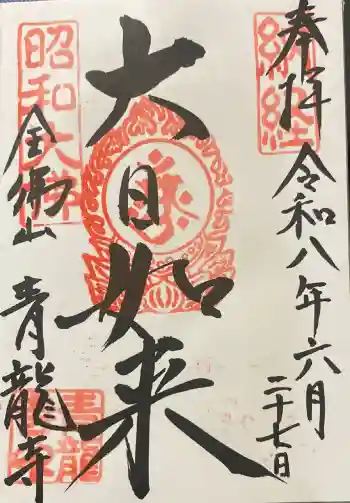 奉拝
令和八年六月
二十七日
納経
大日如来
昭和大佛
金佛山
青龍寺
青龍